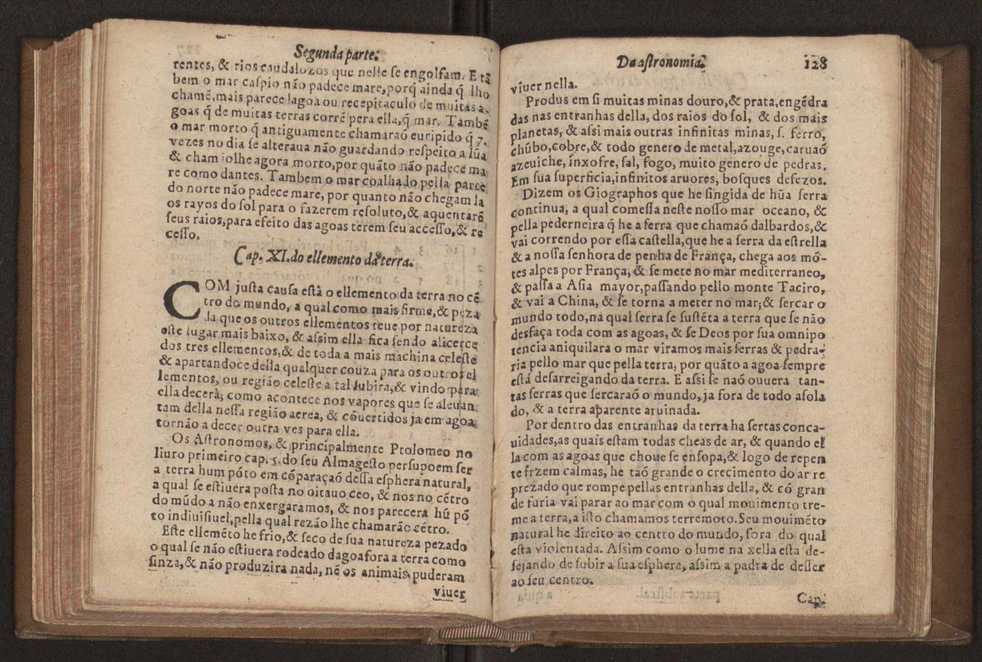 Segunda parte.
rentes, & rios caudalozos que nelle se engolfam. E tã
bem o mar caspio não padece mare, porq̃ ainda q̃ lho
chamẽ, mais parece lagoa ou recepitaculo de muitas a-
goas q̃ de muitas terras corrẽ pera ella, q̃ mar. Tambẽ
o mar morto q̃ antiguamente chamaraõ euripido q̃ 7.
vezes no dia se alteraua não guardando respeito a lũa
& cham lolhe agora morto, por quãto não padece ma
re como dantes. Tambem o mar coalhado pella parte
do norte não padece mare, por quanto não chegam la
os rayos do sol para o fazerem resoluto, & aquentarẽ
seus raios, para efeito das agoas terem seu accesso, & re
cesso.
Cap. XI. do ellemento da terra.
COM justa causa està o ellemento da terra no cẽ
tro do mundo, a qual como mais firme, & peza
da que os outros ellementos teue por natureza
este lugar mais baixo, & assim ella fica sendo alicerce
dos tres ellementos, & de toda a mais machina celeste
& apartandoce della qualquer couza para os outros el
lementos, ou região celeste a tal subira, & vindo para
ella decerà, como acontece nos vapores que se aleuan
tam della nessa região aerea, & cõuertidos ja em agoa
tornão a decer outra ves para ella.
Os Astronomos, & principalmente Ptolomeo no
liuro primeiro cap. 5. do seu Almagesto persupoem ser
a terra hum põto em cõparaçaõ dessa esphera natural,
a qual se estiuera posta no oitauo ceo, & nos no cẽtro
do mũdo a não enxergaramos, & nos parecera hũ põ
to indiuisiuel, pella qual rezão lhe chamarão cẽtro.
Este ellemẽto he frio, & seco de sua natureza pezado
o qual se não estiuera rodeado dagoa fora a terra como
sinza, & não produzira nada, nẽ os animais puderam
viuer
Da astronomia.
128
viuer nella.
Produs em si muitas minas douro, & prata, engẽdra
das nas entranhas della, dos raios do sol, & dos mais
planetas, & assi mais outras infinitas minas, s. ferro,
chũbo, cobre, & todo genero de metal, azouge, caruaõ
azeuiche, inxofre, sal, fogo, muito genero de pedras.
Em sua superficia, infinitos aruores, bosques defezos.
Dizem os Giographos que he singida de hũa serra
continua, a qual comessa neste nosso mar oceano, &
pella pederneira q̃ he a serra que chamaõ dalbardos, &
vai correndo por essa castella, que he a serra da estrella
& a nossa senhora de penha de França, chega aos mõ-
tes alpes por França, & se mete no mar mediterraneo,
& passa a Asia mayor, passando pello monte Taciro,
& vai a China, & se torna a meter no mar, & sercar o
mundo todo, na qual serra se sustẽta a terra que se não
desfaça toda com as agoas, & se Deos por sua omnipo
tencia aniquilara o mar viramos mais serras & pedra-
ria pello mar que pella terra, por quãto a agoa sempre
està desarreigando da terra. E assi se naõ ouuera tan-
tas serras que sercaraõ o mundo, ja fora de todo asola
do, & a terra aparente aruinada.
Por dentro das entranhas da terra ha sertas conca-
uidades, as quais estam todas cheas de ar, & quando el
la com as agoas que choue se ensopa, & logo de repen
te frzem calmas, he taõ grande o crecimento do ar re
prezado que rompe pellas entranhas della, & cõ gran
de furia vai parar ao mar com o qual mouimento tre-
me a terra, a isto chamamos terremoto. Seu mouimẽto
natural he direito ao centro do mundo, fora do qual
esta violentada. Assim como o lume na xella esta de-
sejando de subir a sua esphera, assim a padra de desser
ao seu centro.
Cap.